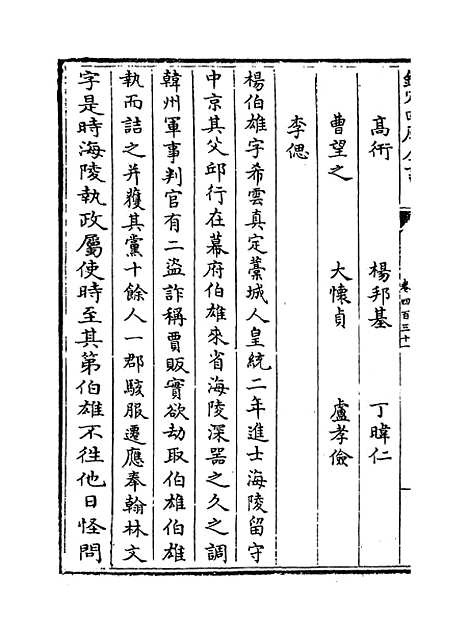 欽定四庫全書
卷四百三十
高衎　楊邦基　丁暐仁
曹望之　大懷貞　盧孝儉
李偲
楊伯雄字希雲真定藁城人皇統二年進士海陵留守
中京其父邱行在幕府伯雄來省海陵深器之久之調
韓州軍事判官有二盜詐稱賈販實欲劫取伯雄伯雄
執而詰之并獲其黨十餘人一郡駭服遷應奉翰林文
字是時海陵執政屬使時至其第伯雄不徃他日怪問